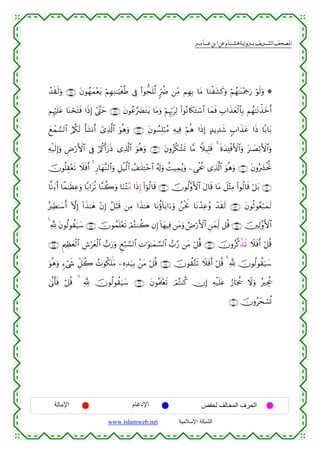 المصحف الشريف برواية هشام عن ابن عامر
۞ وَلَوْ رَحِمْنَٰهُمْ وَكَشَفْنَا مَا بِهِم مِّن ضُرٍّ لَّلَجُّوا۟ فِى طُغْيَٰنِهِمْ يَعْمَهُونَ ۝ وَلَقَدْ
أَخَذْنَٰهُم بِٱلْعَذَابِ فَمَا ٱسْتَكَانُوا۟ لِرَبِّهِمْ وَمَا يَتَضَرَّعُونَ ۝ حَتَّىٰٓ إِذَا فَتَحْنَا عَلَيْهِم
بَابًا ذَا عَذَابٍ شَدِيدٍ إِذَا هُمْ فِيهِ مُبْلِسُونَ ۝ وَهُوَ ٱلَّذِىٓ أَنشَأَ لَكُمُ ٱلسَّمْعَ
وَٱلْأَبْصَٰرَ وَٱلْأَفْـِٔدَةَ ۚ قَلِيلًا مَّا تَشْكُرُونَ ۝ وَهُوَ ٱلَّذِى ذَرَأَكُمْ فِى ٱلْأَرْضِ وَإِلَيْهِ
تُحْشَرُونَ ۝ وَهُوَ ٱلَّذِى يُحْىِۦ وَيُمِيتُ وَلَهُ ٱخْتِلَٰفُ ٱلَّيْلِ وَٱلنَّهَارِ ۚ أَفَلَا تَعْقِلُونَ
۝ بَلْ قَالُوا۟ مِثْلَ مَا قَالَ ٱلْأَوَّلُونَ ۝ قَالُوٓا۟ إِذَا مِتْنَا وَكُنَّا تُرَابًا وَعِظَٰمًا أَءِنَّا
لَمَبْعُوثُونَ ۝ لَقَدْ وُعِدْنَا نَحْنُ وَءَابَآؤُنَا هَٰذَا مِن قَبْلُ إِنْ هَٰذَآ إِلَّآ أَسَٰطِيرُ
ٱلْأَوَّلِينَ ۝ قُل لِّمَنِ ٱلْأَرْضُ وَمَن فِيهَآ إِن كُنتُمْ تَعْلَمُونَ ۝ سَيَقُولُونَ لِلَّهِ ۚ
قُلْ أَفَلَا تَذَّكَّرُونَ ۝ قُلْ مَن رَّبُّ ٱلسَّمَٰوَٰتِ ٱلسَّبْعِ وَرَبُّ ٱلْعَرْشِ ٱلْعَظِيمِ ۝
سَيَقُولُونَ لِلَّهِ ۚ قُلْ أَفَلَا تَتَّقُونَ ۝ قُلْ مَنۢ بِيَدِهِۦ مَلَكُوتُ كُلِّ شَىْءٍ وَهُوَ
يُجِيرُ وَلَا يُجَارُ عَلَيْهِ إِن كُنتُمْ تَعْلَمُونَ ۝ سَيَقُولُونَ لِلَّهِ ۚ قُلْ فَأَنَّىٰ
تُسْحَرُونَ ۝
الحرف المخالف لحفص الإدغام الإمالة
الشبكة الإسلامية www.islamweb.net